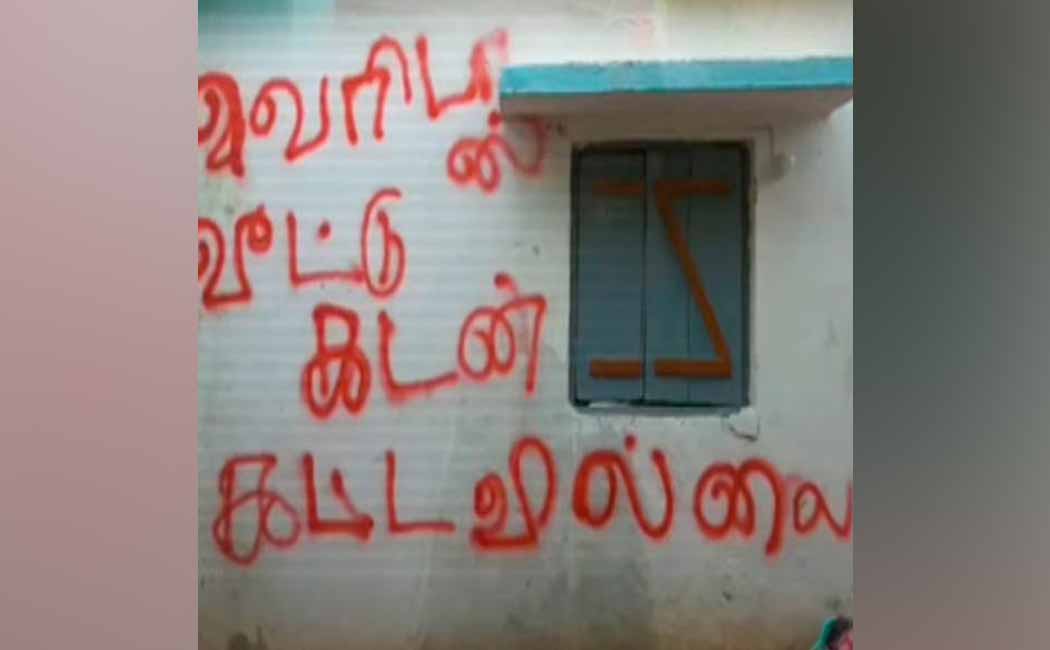 வெரிடா
ஸ்
வீட்டு
கடன்
கட்டவில்லை